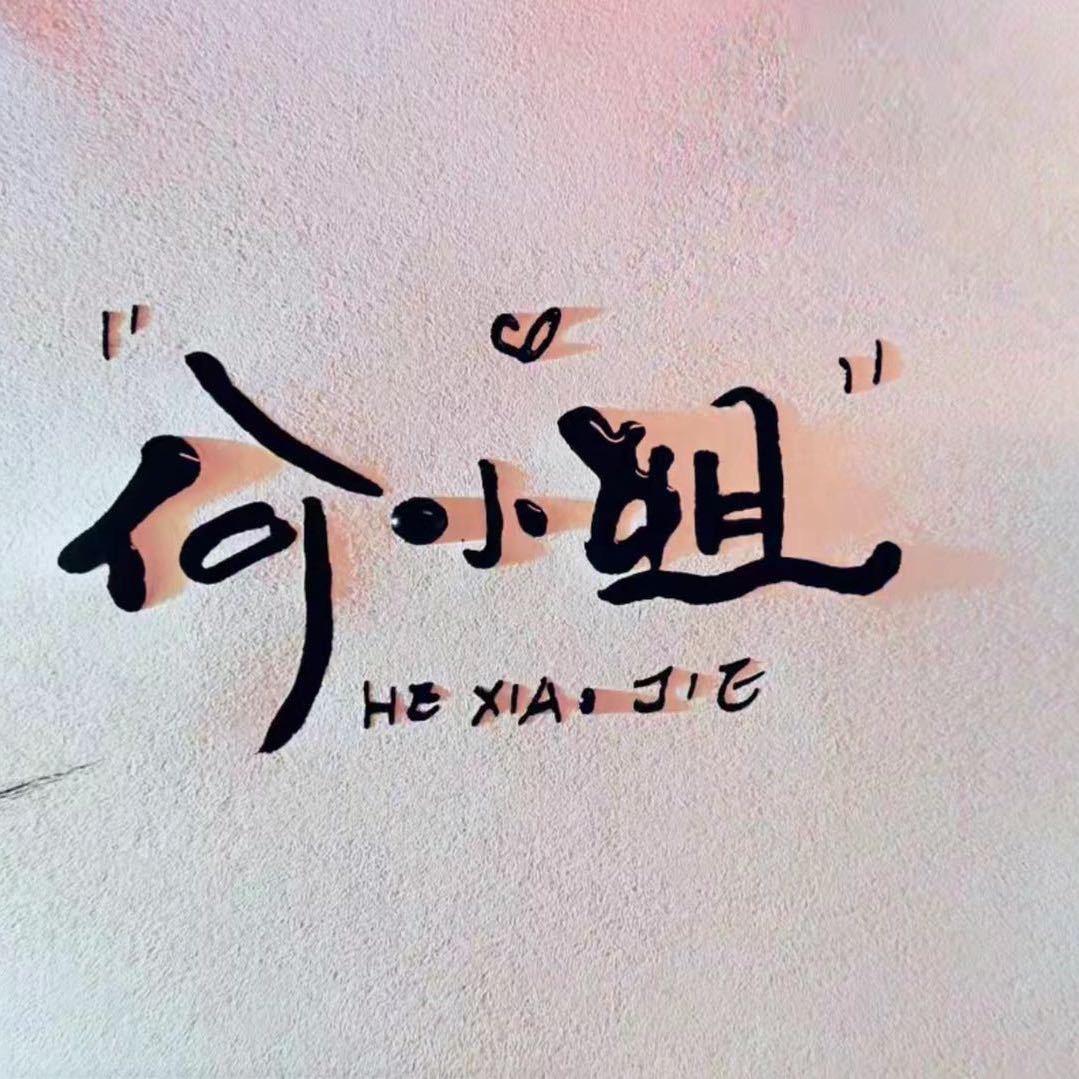 "何小姐"
HE XIAO JIE